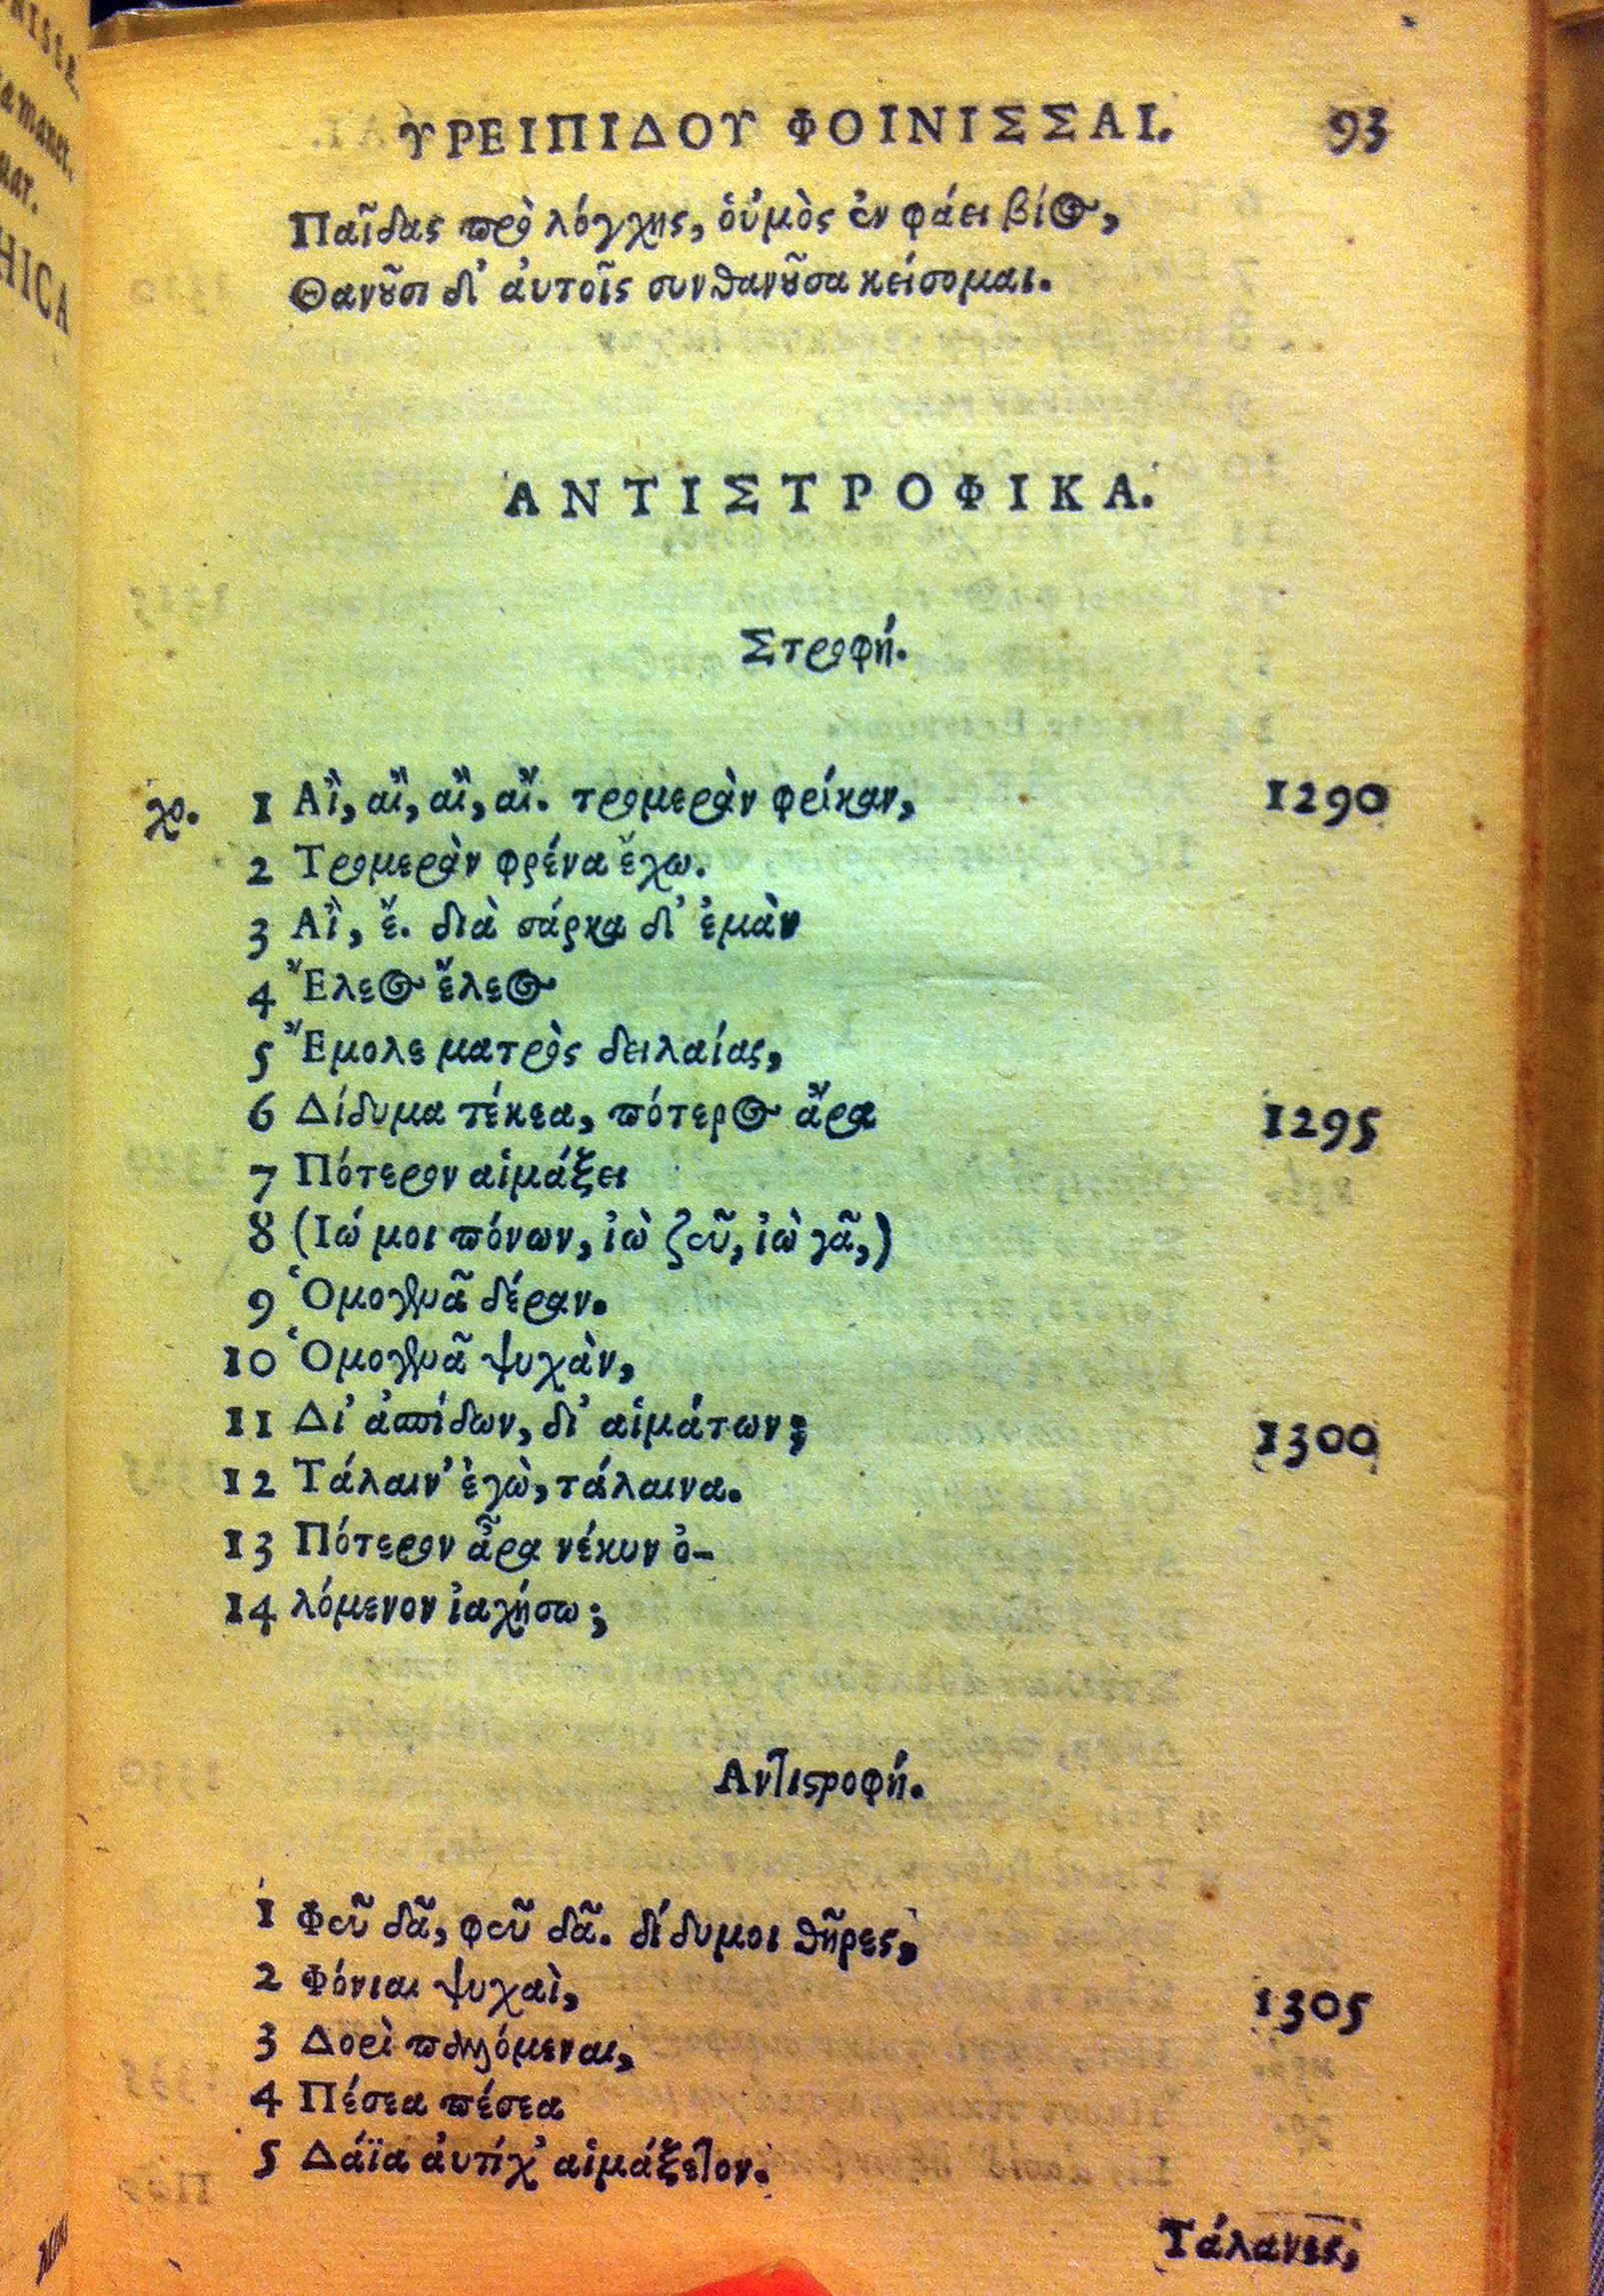 ΥΡΕΙΠΙΔΟΥ ΦΟΙΝΙΣΣΑΙ. 93
Παῖδας πρὸ λόγχης, ὁὐμὸς ἐν φάει βίος,
Θανοῦσι δ' ἀυτοῖς συνθανοῦσα κείσομαι.
ΑΝΤΙΣΤΡΟΦΙΚΑ.
Στροφή.
χο. 1 Αἲ, αἲ, αἲ, αἴ. τρομερὰν φρίκαν, 1290
2 Τρομερὰν φρένα ἔχω.
3 Αἲ, ἔ. διὰ σάρκα δ' ἐμὰν
4 Ἔλεος ἔλεος
5 Ἔμολε ματρὸς δειλαίας,
6 Δίδυμα τέκεα, πότερος ἄρα 1295
7 Πότερον αἱμάξει
8 (Ιώ μοι πόνων, ἰὼ ζεῦ, ἰὼ γᾶ,)
9 Ὁμογενᾶ δέραν.
10 Ὁμογενᾶ ψυχὰν,
11 Δι' ἀσπίδων, δι' αἱμάτων; 1300
12 Τάλαιν' ἐγὼ, τάλαινα.
13 Πότερον ἆρα νέκυν ὀ-
14 λόμενον ἰαχήσω;
Αντιστροφή.
1 Φεῦ δᾶ, φεῦ δᾶ. δίδυμοι θῆρες,
2 Φόνιαι ψυχαὶ, 1305
3 Δορὶ παλλόμεναι,
4 Πέσεα πέσεα
5 Δάϊα ἀυτίχ' αἱμάξετον.
Τάλανες,